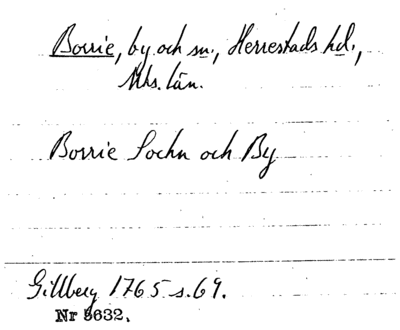 Borrie, by och sn., Herrestads hd.,
Mhs. län.
Borrie Sochn och By
Gillberg 1765 s. 69.
Nr 5632.